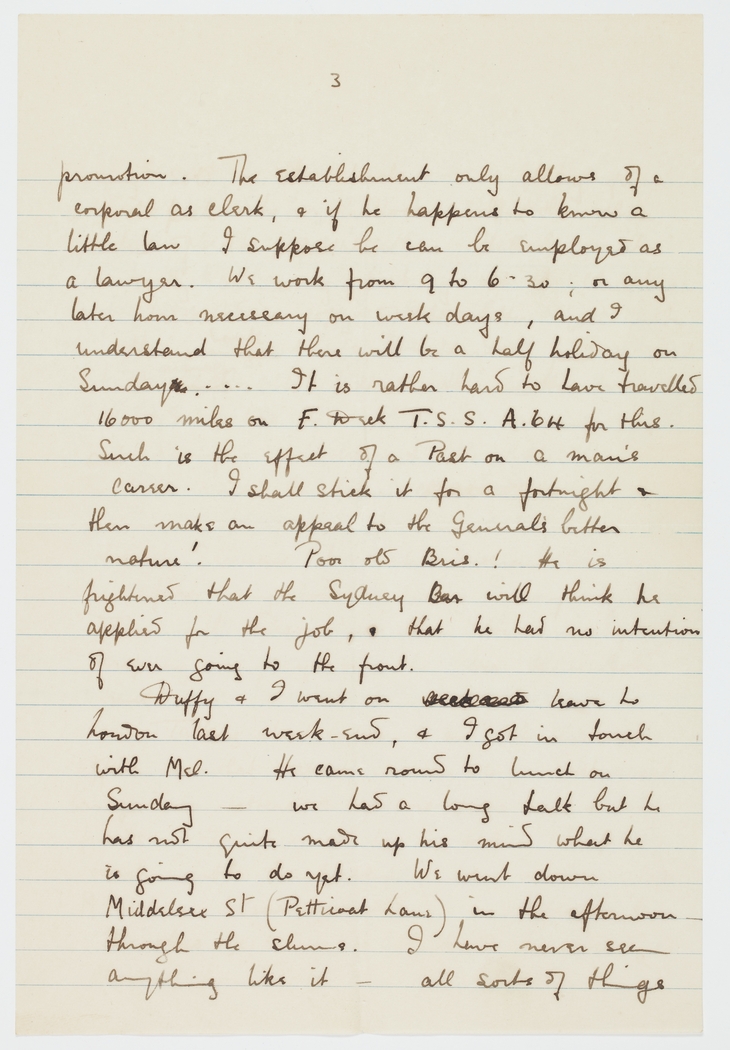 3
promotion. The establishment only allows of a
corporal as clerk, & if he happens to know a
little law I suppose he can be employed as
a lawyer. We work from 9 to 6-30; or any
later hour necessary on week days, and I
understand that there will be a half holiday on
Sunday..... It is rather hard to have travelled
16000 miles on F. Deck T.S.S. A.64 for this.
Such is the effect of a Past on a man's
career. I shall stick it for a fortnight &
then make an appeal to the General's better
nature! Poor old Bris.! He is
frightened that the Sydney Bar will think he
applied for the job, & that he had no intention
of ever going to the front.
Duffy & I went on leave to
London last week-end, & I got in touch
with Mel. He came round to lunch on
Sunday — we had a long talk but he
has not quite made up his mind what he
is going to do yet. We went down
Middelsex St (Petticoat Lane) in the afternoon —
through the slums. I have never seen
anything like it — all sorts of things